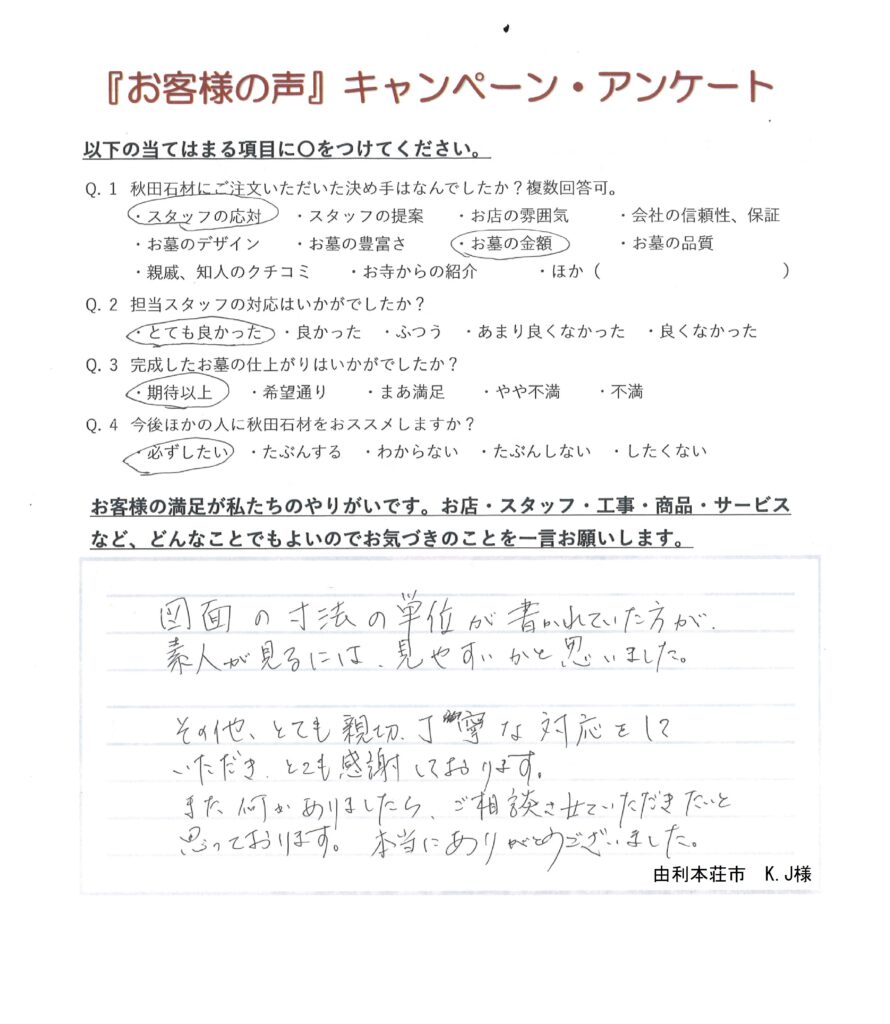 『お客様の声』キャンペーン・アンケート
以下の当てはまる項目に〇をつけてください。
Q. 1 秋田石材にご注文いただいた決め手はなんでしたか？複数回答可。
・スタッフの応対 ・スタッフの提案 ・お店の雰囲気 ・会社の信頼性、保証
・お墓のデザイン ・お墓の豊富さ ・お墓の金額 ・お墓の品質
・親戚、知人のクチコミ ・お寺からの紹介 ・ほか（ ）
Q. 2 担当スタッフの対応はいかがでしたか？
・とても良かった ・良かった ・ふつう ・あまり良くなかった ・良くなかった
Q. 3 完成したお墓の仕上がりはいかがでしたか？
・期待以上 ・希望通り ・まあ満足 ・やや不満 ・不満
Q. 4 今後ほかの人に秋田石材をおススメしますか？
・必ずしたい ・たぶんする ・わからない ・たぶんしない ・したくない
お客様の満足が私たちのやりがいです。お店・スタッフ・工事・商品・サービス
など、どんなことでもよいのでお気づきのことを一言お願いします。
図面の寸法の単位が書かれていた方が、
素人が見るには、見やすいかと思いました。
その他、とても親切、丁寧な対応をして
いただき、とても感謝しております。
また何かありましたら、ご相談させていただきたいと
思っております。本当にありがとうございました。
由利本荘市 K.J様